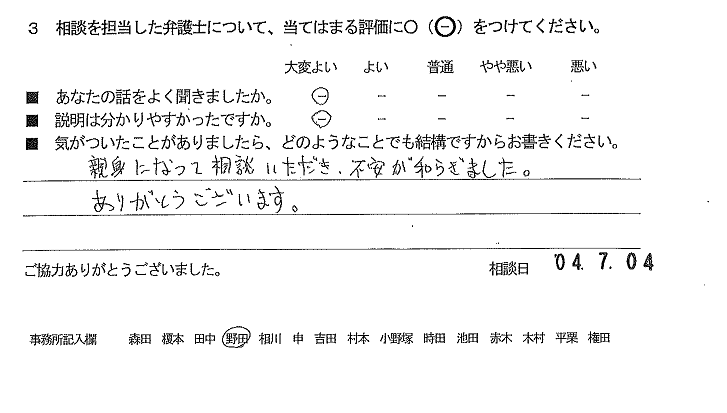 3 相談を担当した弁護士について、当てはまる評価に○（⊖）をつけてください。
大変よい よい 普通 やや悪い 悪い
■ あなたの話をよく聞きましたか。 ⊖ － － － －
■ 説明は分かりやすかったですか。 ⊖ － － － －
■ 気がついたことがありましたら、どのようなことでも結構ですからお書きください。
親身になって相談いただき、不安が和らぎました。
ありがとうございます。
ご協力ありがとうございました。 相談日 '04. 7. 04
事務所記入欄 森田 榎本 田中 野田 相川 申 吉田 村本 小野塚 時田 池田 赤木 木村 平栗 権田